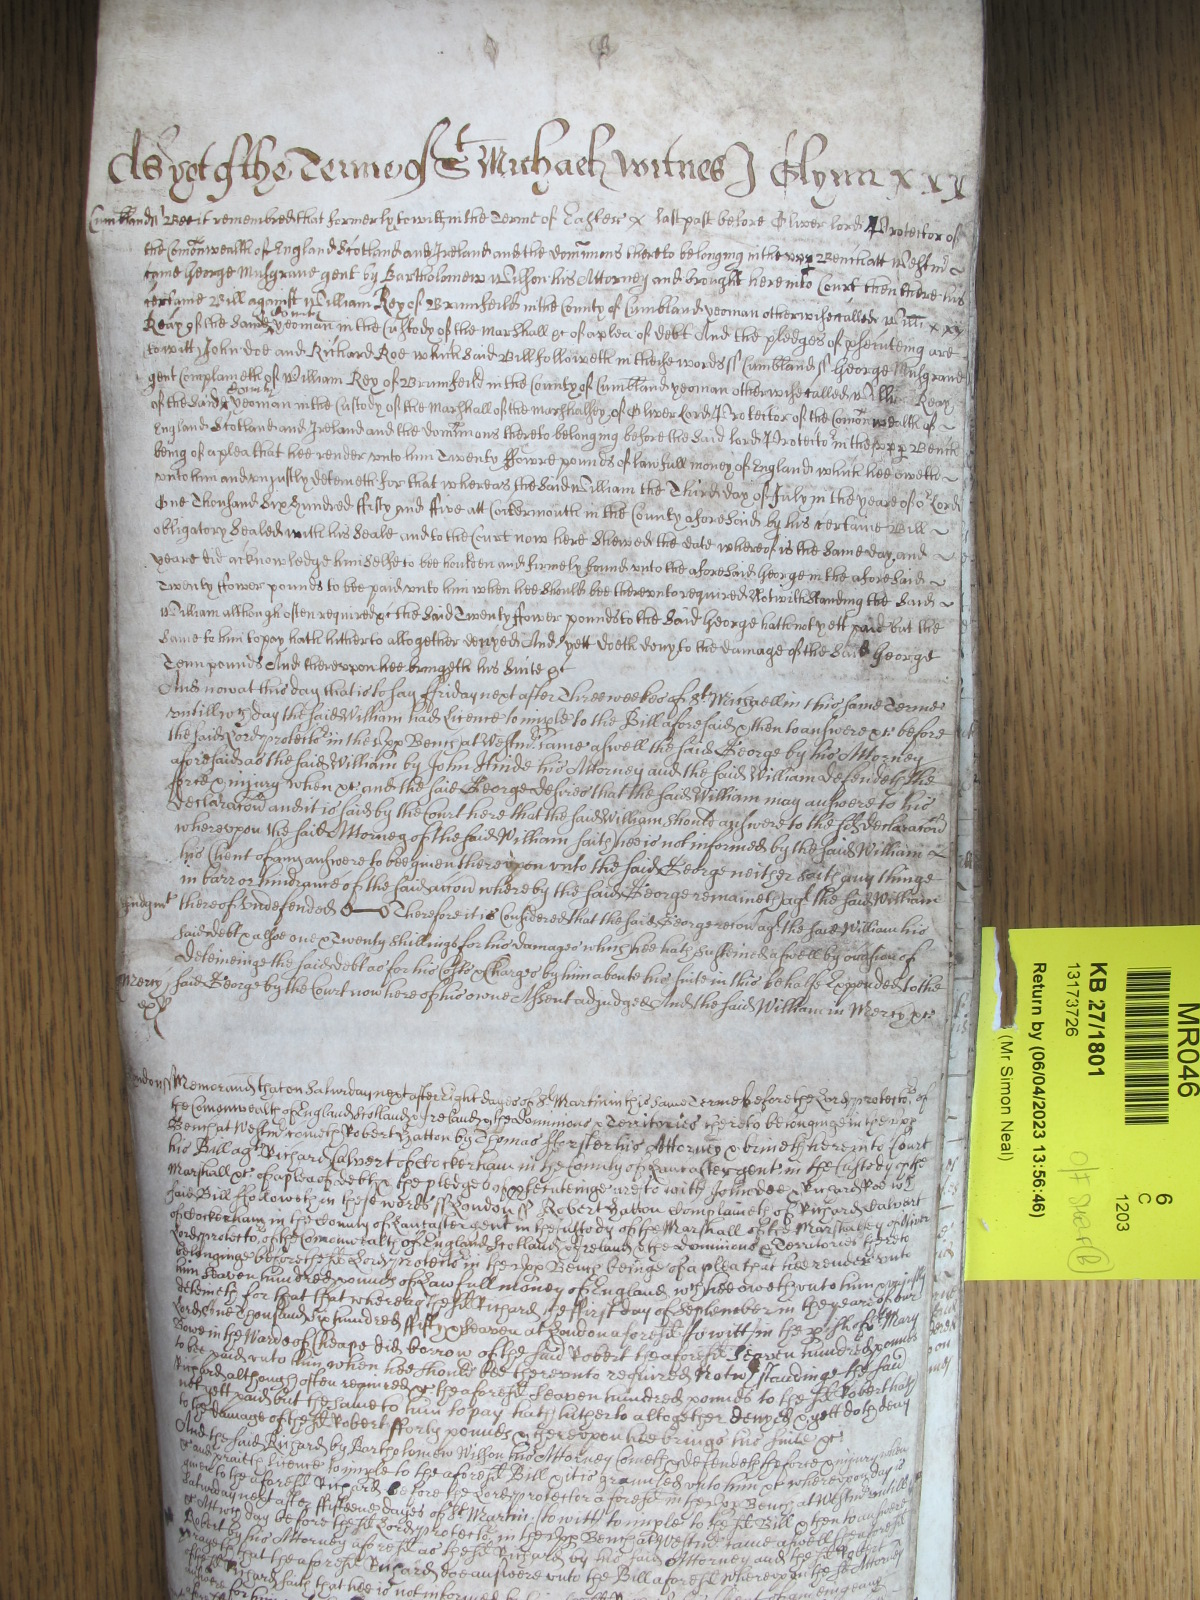 As yet of the Terme of St Michaell witnes J Glynn x x x
Cumbland ss Bee it remembred that formerly to witt in the Terme of Easter x last past before Oliver lord Protector of
the Comonwealth of England Scotland and Ireland and the dominions thereto belonging in the upp Bench att Westm
came George Musgrave gent by Bartholomew Wilson his Attorney and brought here into Court then there his
certaine Bill against William Rey of Brumfeild in the County of Cumbland yeoman otherwise called Willm x xx
Reay of the said County yeoman in the Custody of the Marshall &c of a plea of debt And the pledges of prsecuteing are
to witt John doe and Richard Roe which said Bill followeth in these words ss Cumbland ss George Musgrave
gent complaineth of William Rey of Brumfeild in the County of Cumbland yeoman otherwise called Willm Reay
of the said County yeoman in the Custody of the Marshall of the Marshalsey of Oliver Lord Protector of the Comonwealth of
England Scotland and Ireland and the dominions thereto belonging before the said lord Protector in the upp Bench
being of a plea that hee render unto him Twenty ffowre pounds of lawfull money of England which hee oweth
unto him and unjustly deteineth for that whereas the said William the Third day of July in the yeare of or Lord
One Thousand Six hundred ffifty and ffive att Cockermouth in the County aforesaid by his certaine Bill
obligatory Sealed with his Seale and to the Court now here shewed the date whereof is the same day and
yeare did acknowledge himselfe to bee houlden and firmely bound unto the aforesaid George in the aforesaid
Twenty ffower pounds to bee paid unto him when hee should bee thereunto required Notwithstanding the said
William although often required &c the said Twenty ffower pounds to the said George hath not yett paid but the
same to him to pay hath hitherto altogether denyed And yett doeth deny to the damage of the said George
Tenn pounds And thereupon hee bringeth his Suite &c
And now at this day that is to say ffriday next after Three weekes of St Michaell in this same Terme
untill wch day the said William had Licence to imple to the Bill aforesaid & then to answere &c before
the said Lord protector in the upp Bench at Westmr came aswell the said George by his Attorney
aforesaid as the said William by John Hinde his Attorney and the said William defendeth the
force & injury when &c and the said George desires that the said William may answere to his
declaracon and it is said by the Court here that the said William should answere to the sd declaracon
whereupon the said Attorney of the said William saith hee is not informed by the said William
his Client of any answere to bee given thereupon unto the said George neither saith any thinge
in barr or hindrance of the said accon whereby the said George remaineth agt the said William
Judgmt thereof Undefended Therefore it is Considered that the said George recover agt the said William his
said debt & alsoe one & Twenty shillings for his damages which hee hath susteined aswell by occasion of
deteineinge the said debt as for his Costs & Charges by him aboute his suite in this behalfe Expended to the
Mercy said George by the Court now here of his owne Assent adjudged And the said William in Mercy &c
London ss Memorand that on Saturday next after Eight dayes of St Martin in this same Terme before the Lord protector of
the Comonwealth of England Scotland & Ireland & the Dominions & Territories thereto belonginge in the upp
Bench at Westmr cometh Robert Hatton by Thomas fforster his Attorney & bringeth here into Court
his Bill agt Richard Calvert of Cockerham in the County of Lancaster gent in the Custody of the
Marshall &c of a plea of debt & the pledges of prsecuteinge are to witt John doe & Richard Roe wch
said Bill ffolloweth in these words ss London ss Robert Hatton Complaineth of Richard Calvert
of Cockerham in the County of Lancaster gent in the Custody of the Marshall of the Marshalsey of Oliver
Lord protector of the Comonwealth of England Scotland & Ireland & the Dominions & Territories thereto
belonginge before the sd Lord protector in the upp Bench beinge of a plea that hee render unto
him Seaven hundred pounds of Lawfull money of England wch hee oweth unto him & unjustly
deteineth for that whereas the sd Richard the ffirst day of September in the yeare of our
Lord One Thousand Six hundred ffifty & seaven at London aforesd to witt in the prsh of St Mary
Bowe in the Warde of Cheape did borrow of the said Robert the aforesd Seaven hundred pounds
to bee paid unto him when hee should bee thereunto required Notwthstandinge the said
Richard although often required &c the aforesd Seaven hundred pounds to the sd Robert hath
not yett paid but the same to him to pay hath hitherto altogether denyed & yett doth deny
to the damage of the sd Robert fforty pounds & thereupon hee brings his suite &c
And the said Richard by Bartholomew Wilson his Attorney Cometh & defendeth the force & injury when
&c and praith Licence to imple to the aforesd Bill & it is graunted unto him &c whereupon day is
given to the aforesd Richard before the Lord protector aforesd in the upp Bench at Westmr untill
Saturday next after ffifteene dayes of St Martin to witt to imple to the sd Bill & then to answere
&c At wch day before the sd Lord protector in the upp Bench at Westmr came aswell the aforesd
Robert by his Attorney aforesd as the sd Richard by his said Attorney and the sd Robert
prayeth that the aforesd Richard doe answere unto the Bill aforesd whereupon the sd Attorney
of the sd Richard saith that hee is not informed
MR046
6
C
1203
KB 27/1801
13173726
Return by (06/04/2023 13:56:46)
(Mr Simon Neal)